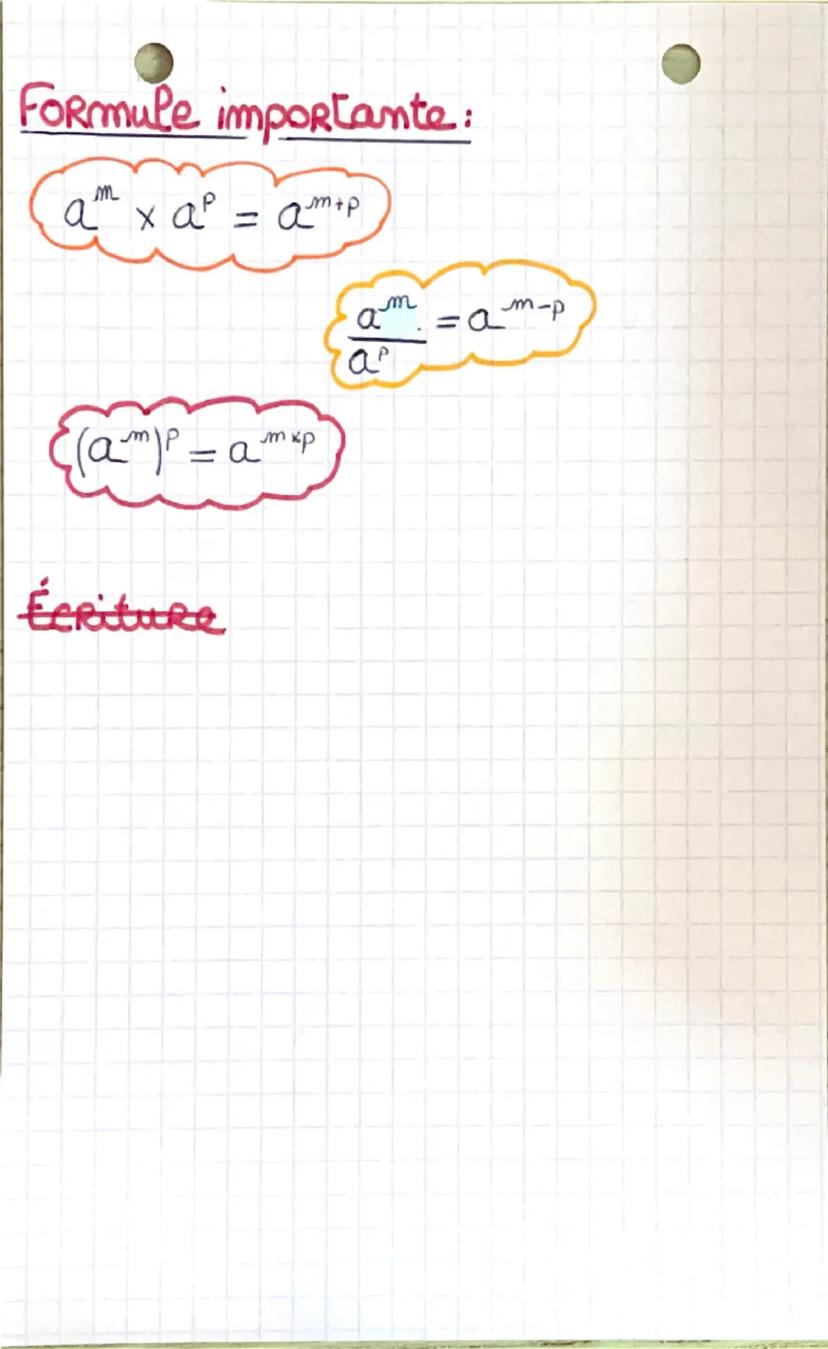 Formule importante :
aᵐ × aᵖ = aᵐ⁺ᵖ
aᵐ / aᵖ = aᵐ⁻ᵖ
(aᵐ)ᵖ = aᵐˣᵖ
Écriture